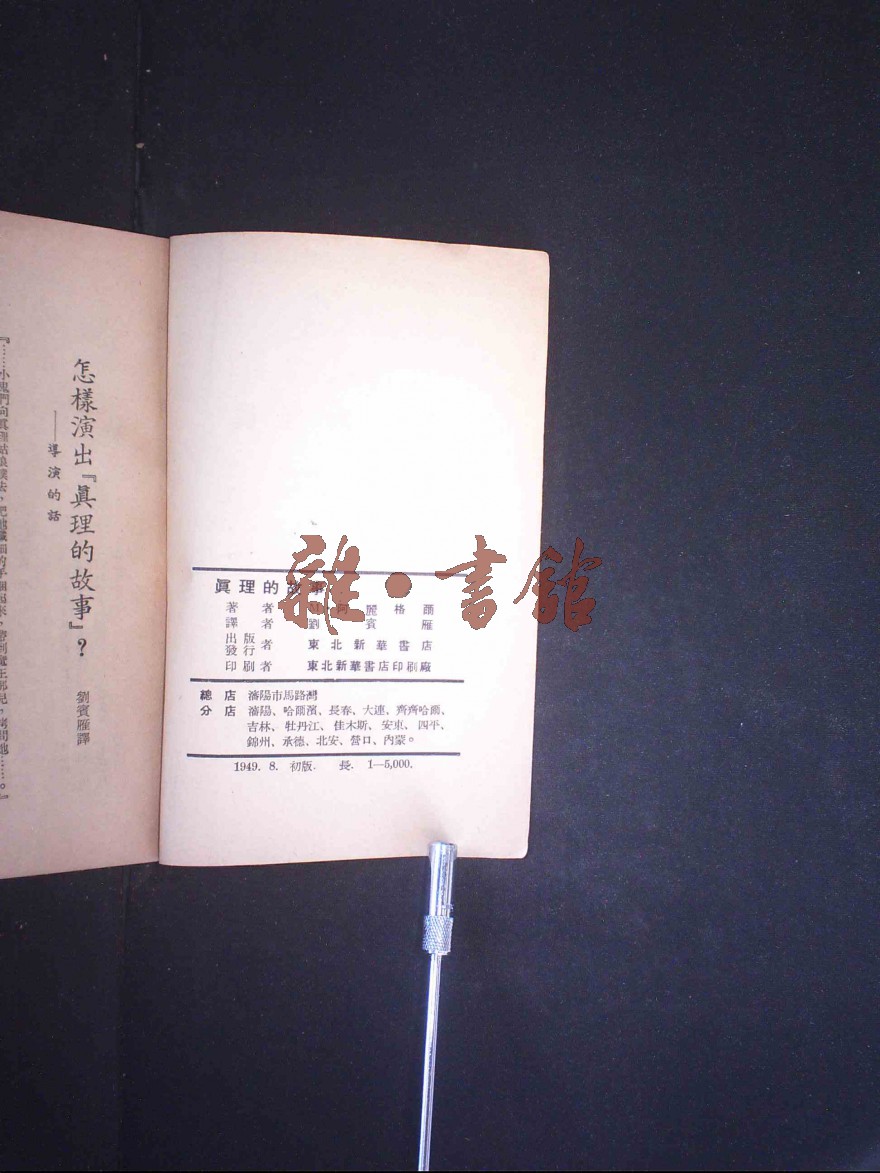 怎樣演出『眞理的故事』?
——導演的話
劉賓雁譯
眞理的故事
著者 M 阿麗格爾
譯者 劉賓雁
出版
發行者 東北新華書店
印刷者 東北新華書店印刷廠
總店 瀋陽市馬路灣
分店 瀋陽、哈爾濱、長春、大連、齊齊哈爾、
吉林、牡丹江、佳木斯、安東、四平、
錦州、承德、北安、營口、內蒙。
1949. 8. 初版. 長. 1—5,000.
雜·書館